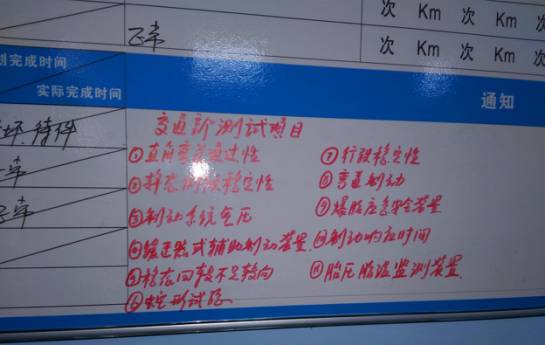 次 Km 次 Km 次
正常 次 Km 次 Km 次
划完成时间
实际完成时间
通知
坏.待件
常
常
交通部测试项目
①直角弯道通过性
②静态侧倾稳定性
③制动系统气压
④缓速器或辅助制动装置
⑤稳态回转不足转向
⑥蛇形试验
⑦行驶稳定性
⑧弯道制动
⑨爆胎应急安全装置
⑩制动响应时间
⑪胎压胎温监测装置